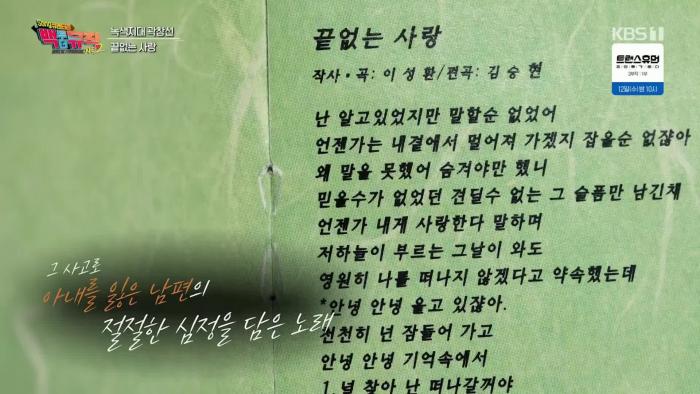 백투더뮤직
녹색지대 곽창선
끝없는 사랑
KBS 1
트랜스휴먼
12일(수) 밤 10시
끝없는 사랑
작사·곡: 이성환/편곡: 김승현
난 알고있었지만 말할순 없었어
언젠가는 내곁에서 멀어져 가겠지 잡을순 없잖아
왜 말을 못했어 숨겨야만 했니
믿을수가 없었던 견딜수 없는 그 슬픔만 남긴채
언젠가 내게 사랑한다 말하며
저하늘이 부르는 그날이 와도
영원히 나를 떠나지 않겠다고 약속했는데
*안녕 안녕 울고 있잖아.
천천히 넌 잠들어 가고
안녕 안녕 기억속에서
1.널 찾아 난 떠나갈꺼야
그 사고로
아내를 잃은 남편의
절절한 심정을 담은 노래